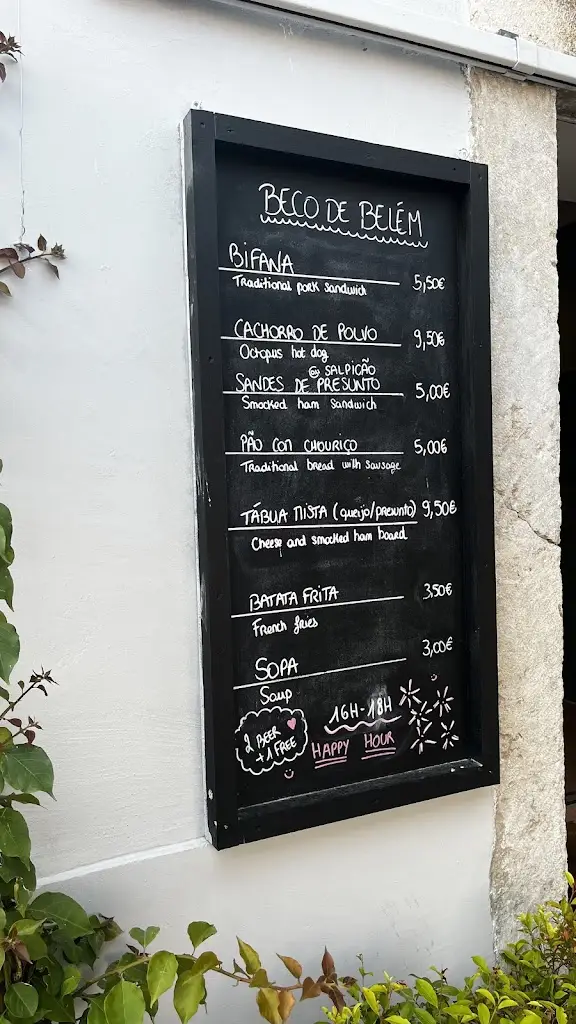 BECO DE BELÉM
BIFANA
Traditional pork sandwich 5,50€
CACHORRO DE POLVO 9,50€
Octopus hot dog
ou SALPICÃO
SANDES DE PRESUNTO 5,00€
Smocked ham sandwich
PÃO COM CHOURIÇO 5,00€
Traditional bread with sausage
TÁBUA MISTA (queijo/presunto) 9,50€
Cheese and smocked ham board
BATATA FRITA 3,50€
French fries
SOPA 3,00€
Soup
2 BEER
+1 FREE
16H-18H
HAPPY HOUR